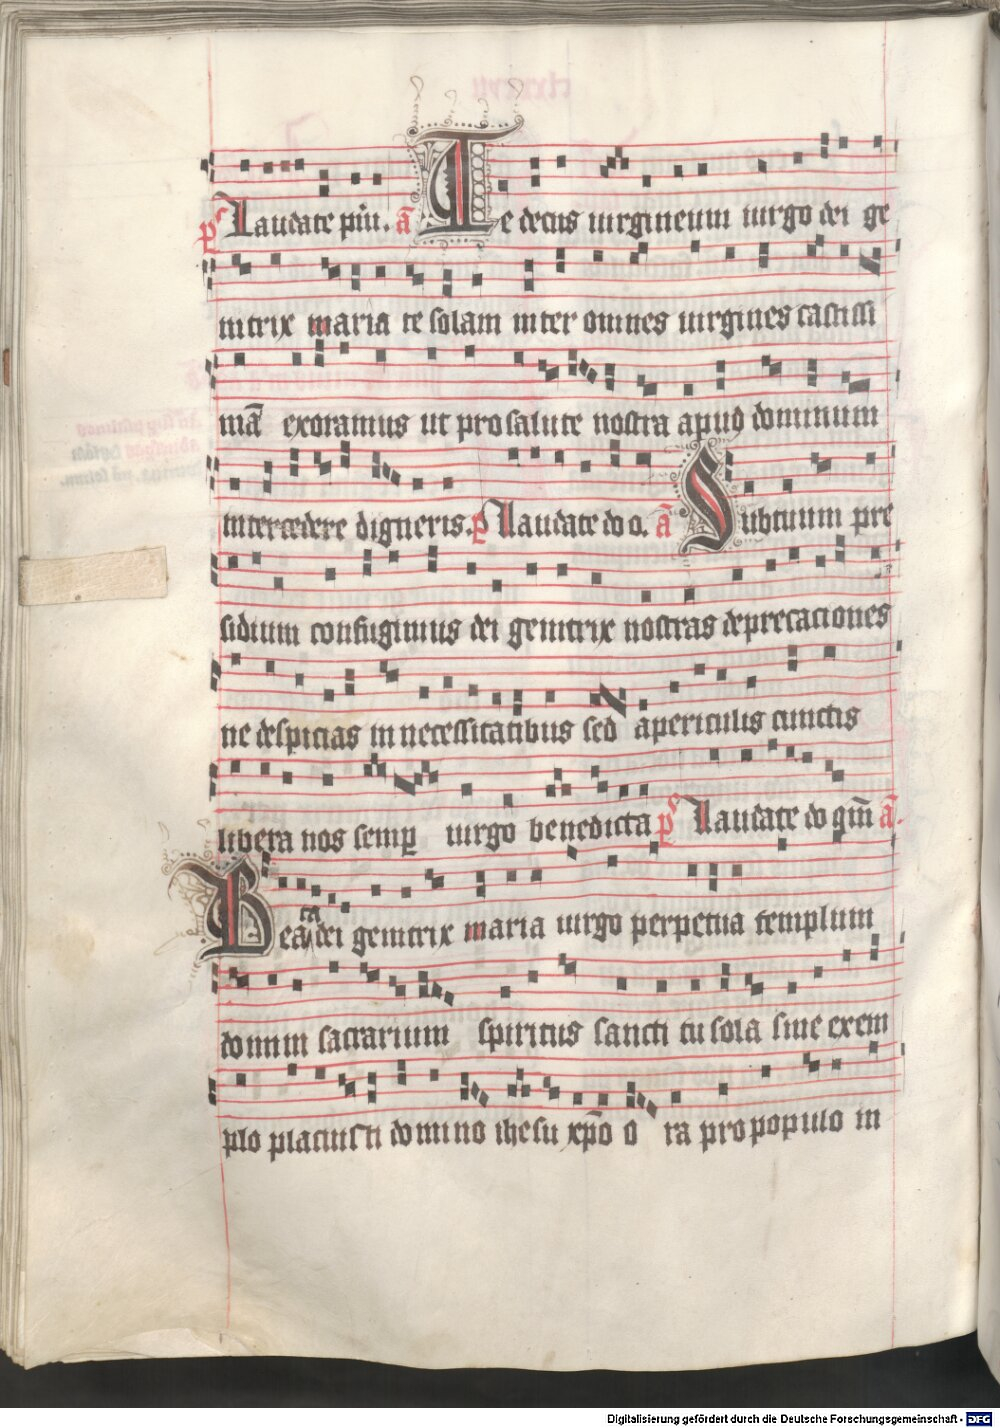 ps Laudate pūi. ā Te decus uirgineum uirgo dei ge
nitrix maria te solam inter omnes uirgines castissi
mā exoramus ut pro salute nostra apud dominum
intercedere digneris. p Laudate do o. ā Sub tuum pre
sidium confugimus dei genitrix nostras deprecaciones
ne despicias in necessitatibus sed a periculis cunctis
libera nos semp uirgo benedicta ps Laudate do qm̄ ā.
Beata dei genitrix maria uirgo perpetua templum
domini sacrarium spiritus sancti tu sola sine exem
plo placuisti domino ihesu xp̄o o ra pro populo in
Digitalisierung gefördert durch die Deutsche Forschungsgemeinschaft - DFG